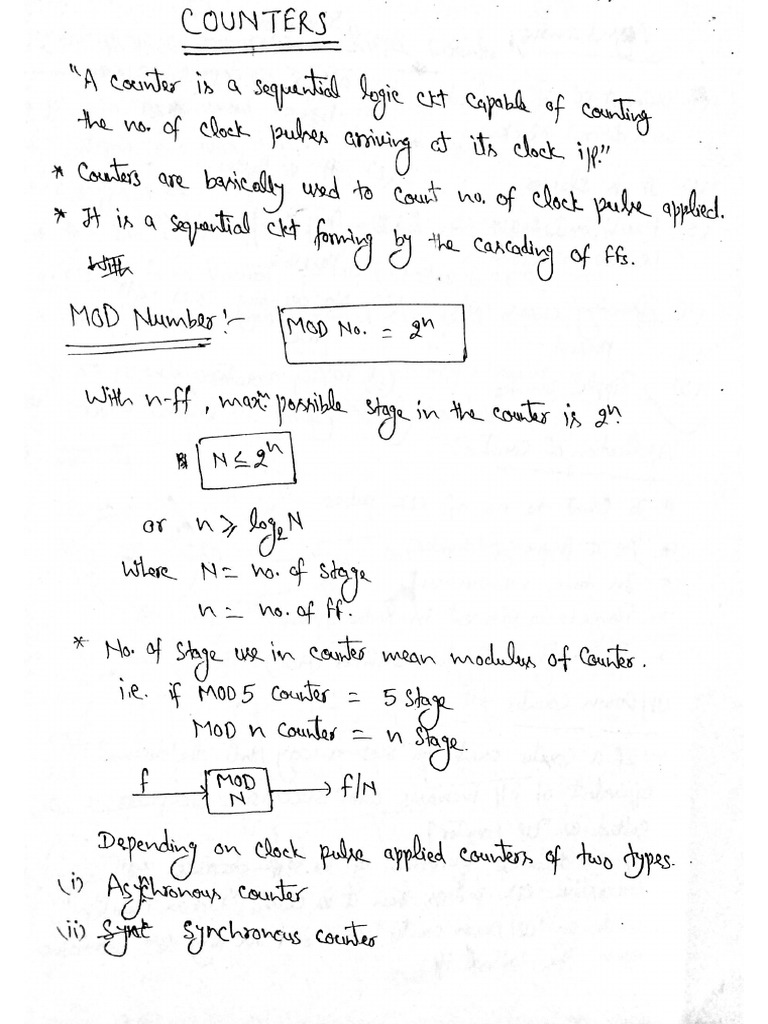 COUNTERS
"A counter is a sequential logic ckt capable of counting
the no. of clock pulses arriving at its clock i/p."
* Counters are basically used to count no. of clock pulse applied.
* It is a sequential ckt forming by the cascading of ffs.
With
MOD Number:- MOD No. = 2ⁿ
With n-ff, maxᵐ possible stage in the counter is 2ⁿ.
N ≤ 2ⁿ
or n ≥ log₂N
Where N = no. of stage
n = no. of ff.
* No. of stage use in counter mean modulus of Counter.
i.e. if MOD 5 counter = 5 stage
MOD n counter = n stage.
f MOD N → f/N
Depending on clock pulse applied counters of two types.
(i) Asynchronous counter
(ii) Synchronous counter